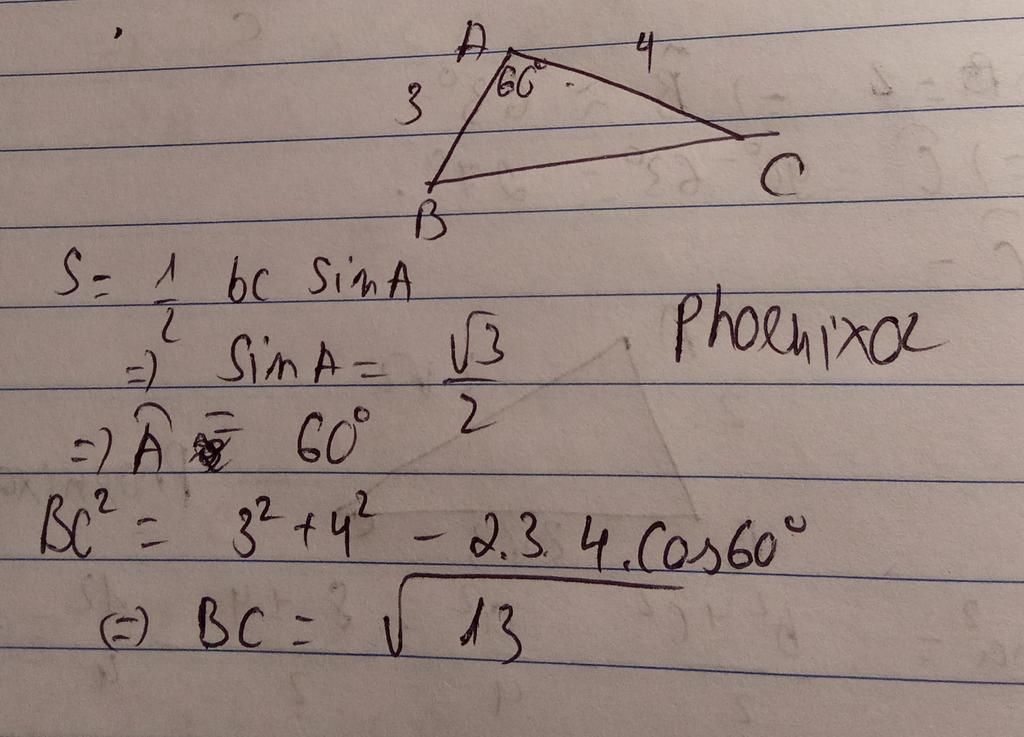 A
4
60°
3
C
B
S = 1/2 bc sin A
=) sin A = √3/2
Phoenixoz
=) Â = 60°
BC² = 3² + 4² - 2.3.4.cos60°
(=) BC = √13